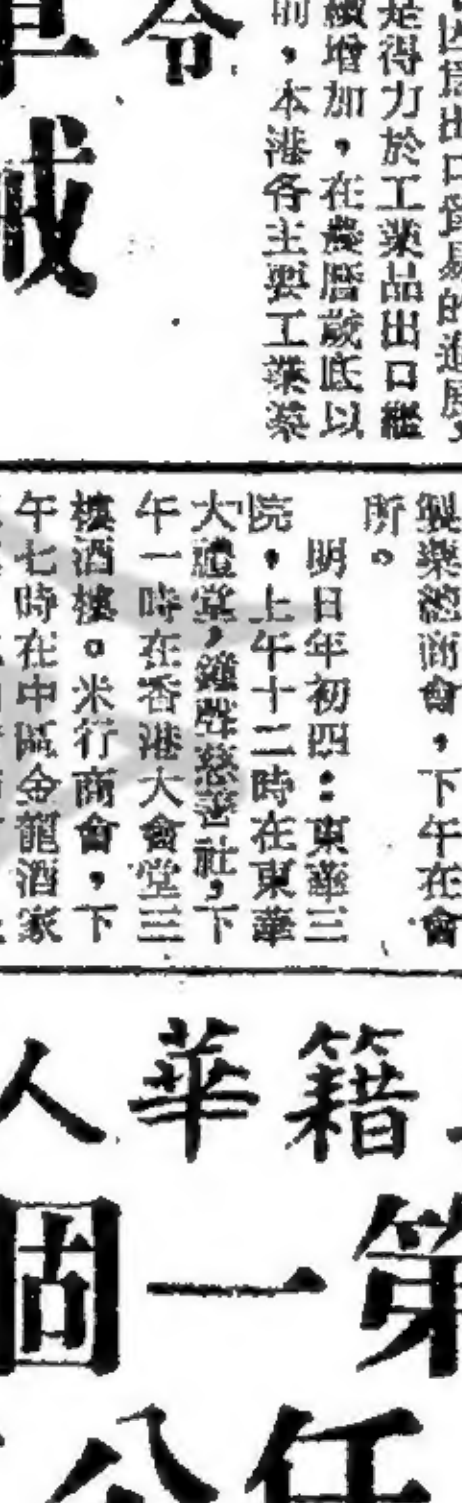 因為出口貿易的進展，
是得力於工業品出口繼
續增加，在農曆歲底以
前，本港各主要工業業
令
戒
製業總商會，下午在會
所。
明日年初四：東華三
院，上午十二時在東華
大禮堂，鐘聲慈善社，下
午一時在香港大會堂三
樓酒樓。米行商會，下
午七時在中區金龍酒家
籍華人
第一個
任公